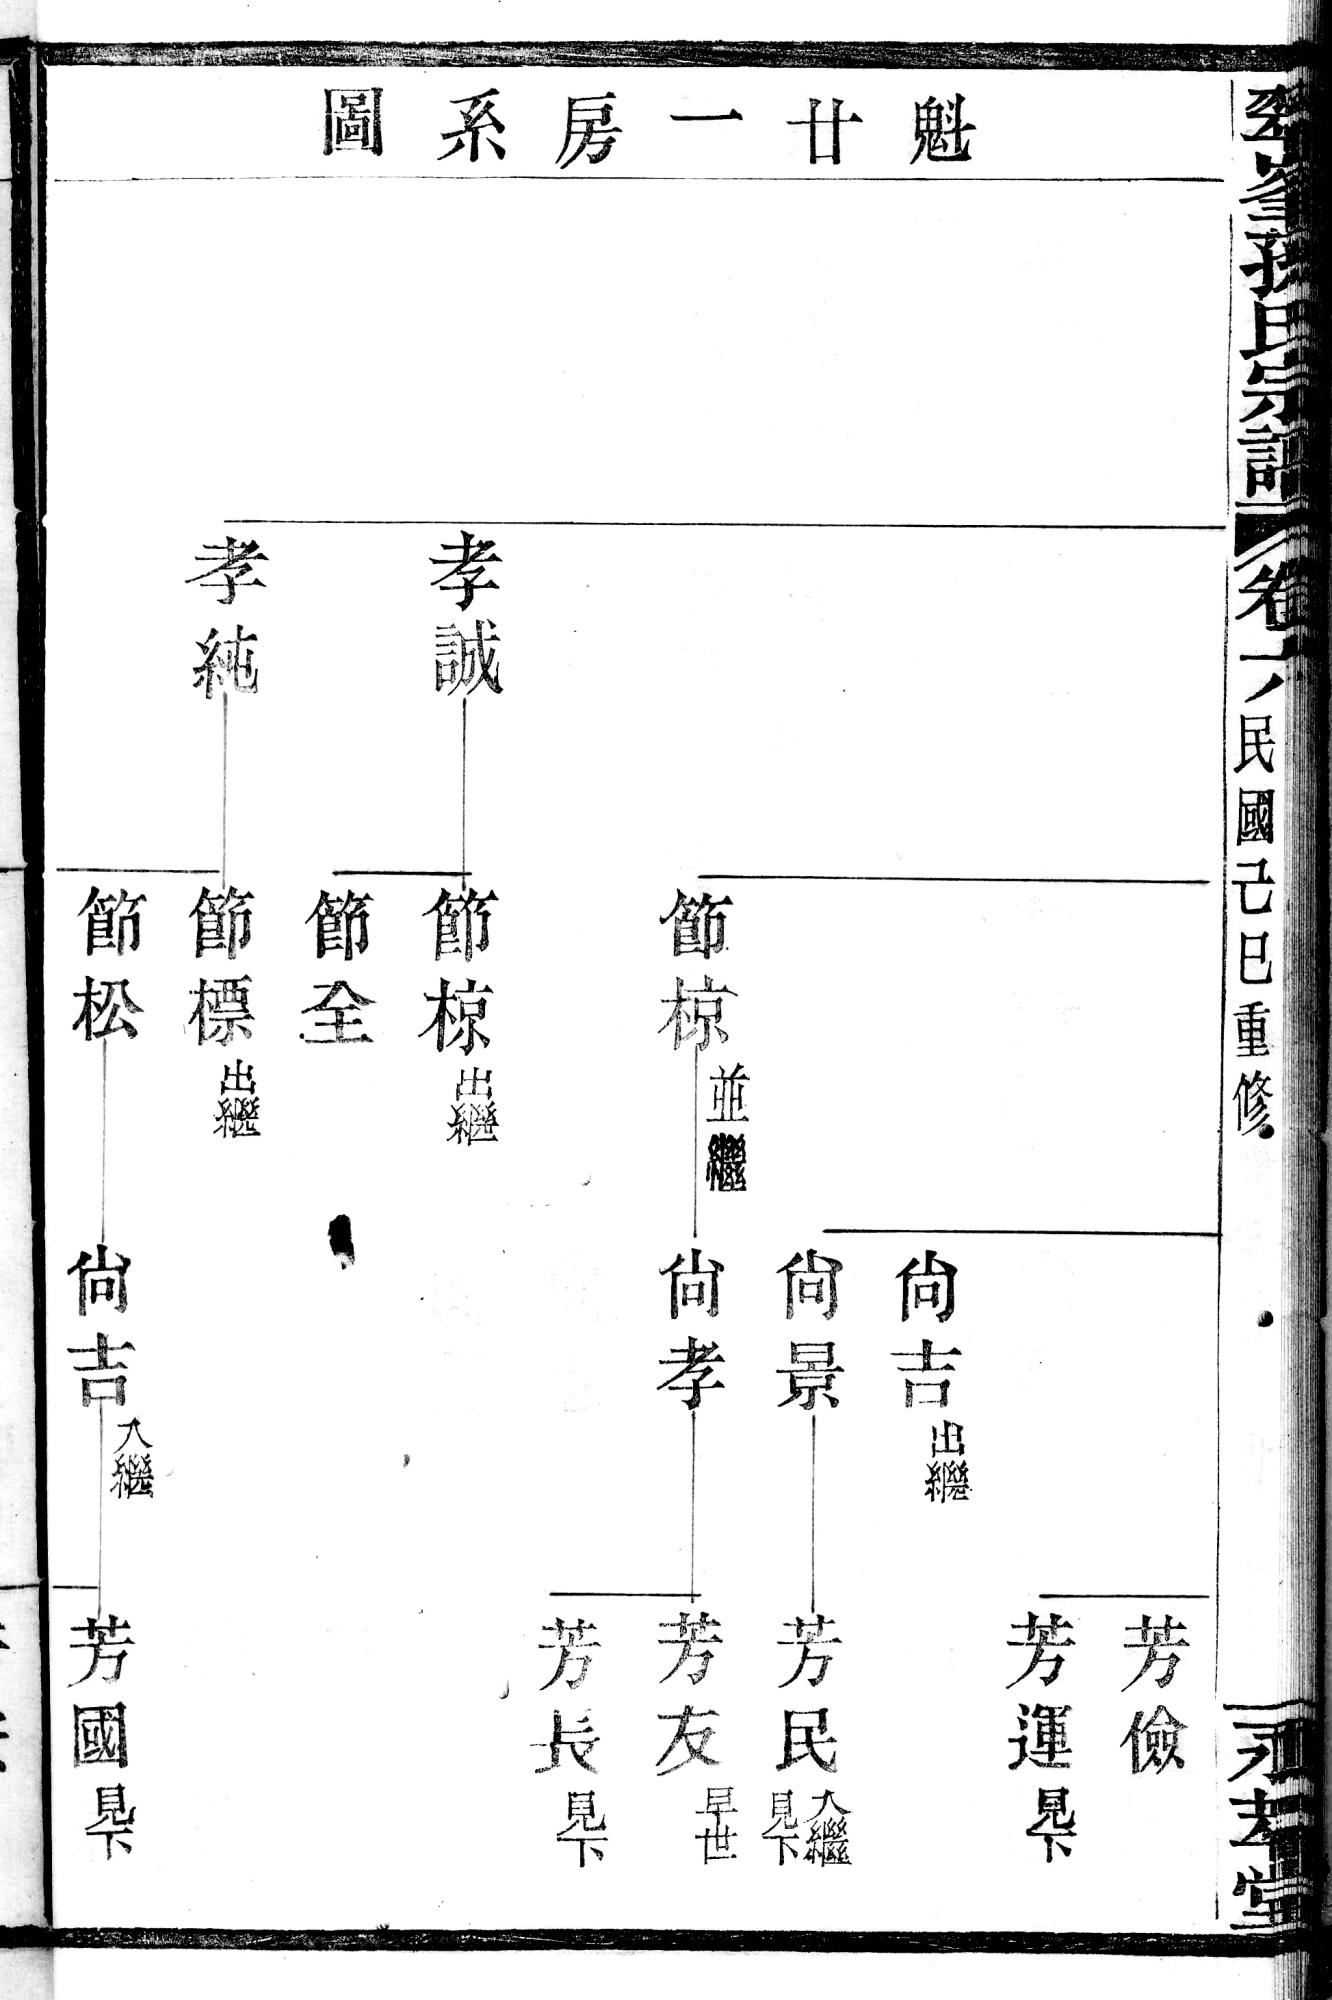 魁廿一房系圖
孝誠
孝純
節椋 並繼
節椋 出繼
節全
節標 出繼
節松
尙吉 出繼
尙景
尙孝
尙吉 入繼
芳儉
芳運 見下
芳民 入繼 見下
芳友 早世
芳長 見下
芳國 見下
孫氏宗譜
卷
民國己巳重修
孝堂